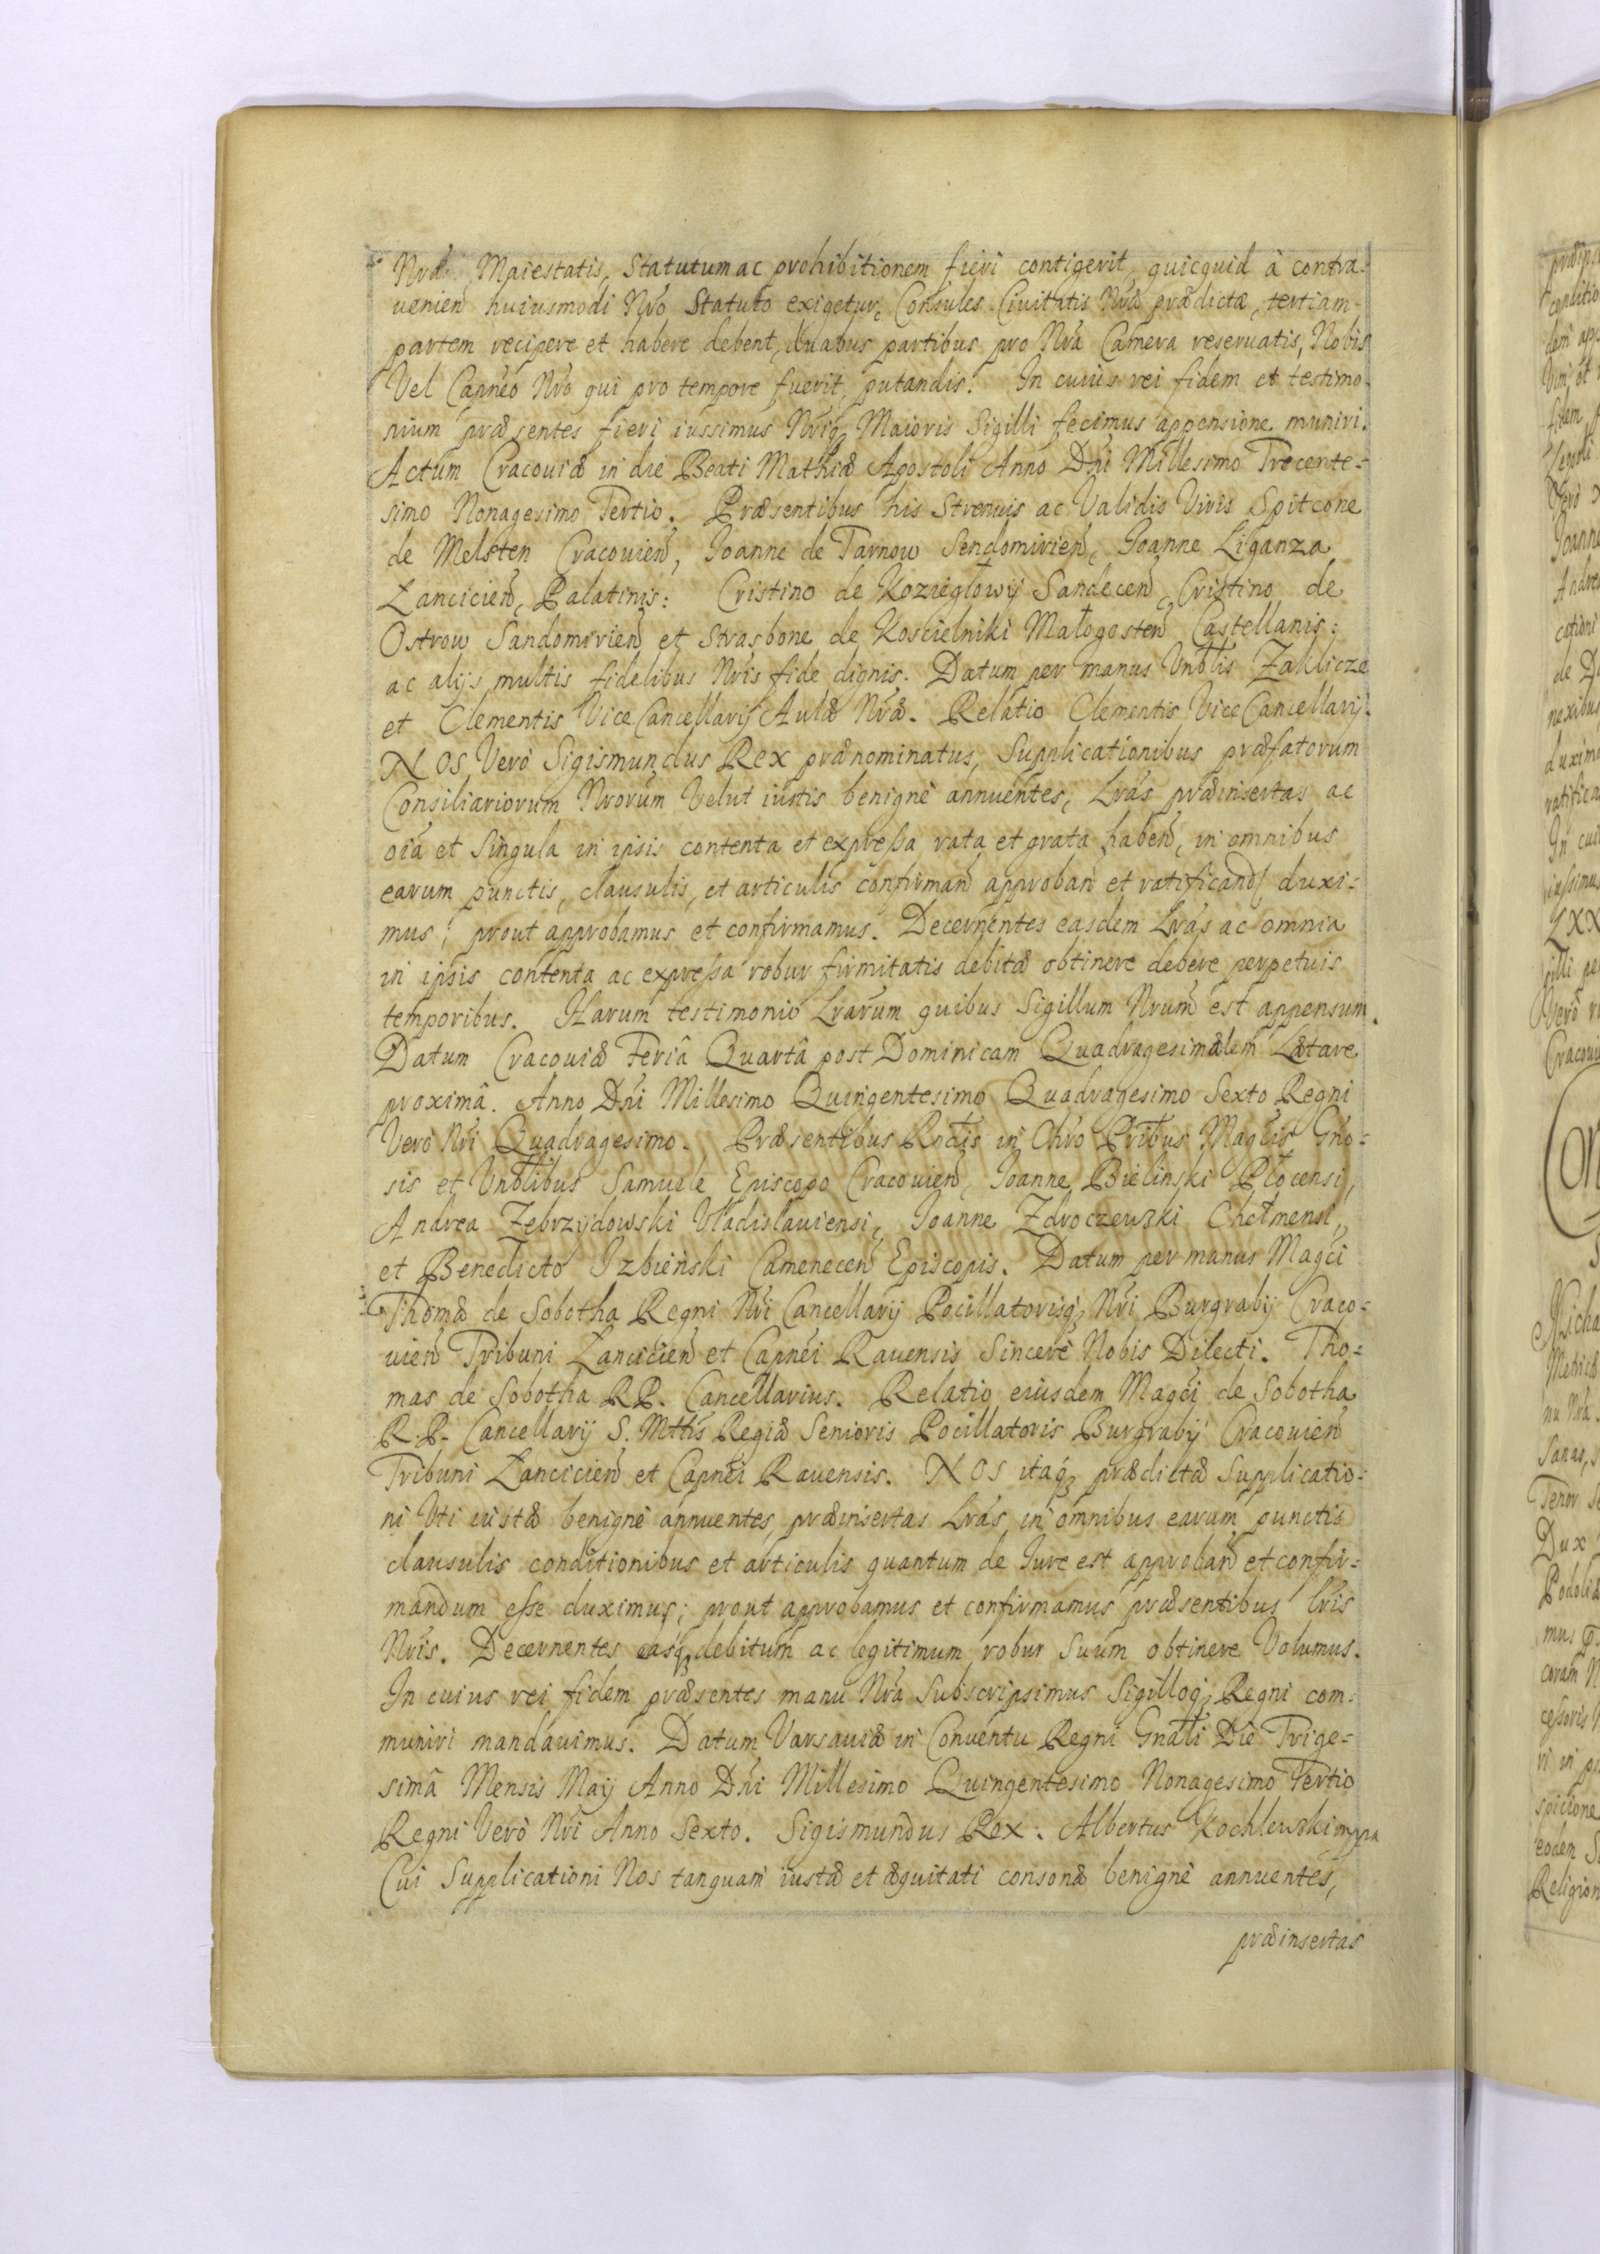 Nrae Maiestatis, Statutum ac prohibitionem fieri contigerit, quicquid à contra-
uenien̄ huiusmodi Nrō Statuto exigetur, Consules Ciuitatis Nrae praedictae, tertiam
partem recipere et habere debent, duabus partibus pro Nrā Camera reseruatis, Nobis
Vel Capnēo Nrō qui pro tempore fuerit, putandis. In cuius rei fidem et testimo-
nium praesentes fieri iussimus Nriq; Maioris Sigilli fecimus appensione muniri.
Actum Cracouiae in die Beati Mathiae Apostoli Anno Dn̄i Millesimo Trecente-
simo Nonagesimo Tertio. Praesentibus his Strenuis ac Validis Viris Spitcone
de Melsten Cracouien̄, Joanne de Tarnow Sendomirien̄, Joanne Liganza
Lancicien̄, Palatinis: Cristino de Koziegłowij Sandecen̄, Cristino de
Ostrow Sandomirien̄ et Strasbone de Koscielniki Małogosten̄ Castellanis;
ac alijs multis fidelibus Nrīs fide dignis. Datum per manus Vnb̄lis Zaklicze
et Clementis Vice Cancellarij Aulae Nrae. Relatio Clementis Vice Cancellarij.
NOS Verò Sigismundus Rex praenominatus, Supplicationibus praefatorum
Consiliariorum Nrorum Velut iustis benignè annuentes, Lrās praeinsertas ac
oīa et Singula in ipsis contenta et expressa rata et grata haben̄, in omnibus
earum punctis, clausulis, et articulis confirman̄ approban̄ et ratificand̄ duxi-
mus; prout approbamus et confirmamus. Decernentes easdem Lrās ac omnia
in ipsis contenta ac expressa robur firmitatis debitae obtinere debere perpetuis
temporibus. Harum testimonio Lrārum quibus Sigillum Nrum est appensum.
Datum Cracouiae Feriâ Quartâ post Dominicam Quadragesimalem Laetare
proximâ. Anno Dn̄i Millesimo Quingentesimo Quadragesimo Sexto Regni
Verò Nrī Quadragesimo. Praesentibus Rndis in Chrō Pribus Magcīs Gn̄o-
sis et Vnb̄libus Samuele Episcopo Cracouien̄, Joanne Bielinski Płocensi,
Andrea Zebrzijdowski Vladislauiensi, Joanne Zdroczewski Chełmensi,
et Benedicto Izbieński Camenecen̄ Episcopis. Datum per manus Magcī
Thomae de Sobotha Regni Nrī Cancellarij Pocillatorisq; Nrī Burgrabij Craco-
uien̄ Tribuni Lancicien̄ et Capnēi Rauensis Sincerè Nobis Dilecti. Tho-
mas de Sobotha RP. Cancellarius. Relatio eiusdem Magcī de Sobotha
R. P. Cancellarij S. Mttis Regiae Senioris Pocillatoris Burgrabij Cracouien̄
Tribuni Lancicien̄ et Capnēi Rauensis. NOS itaq; praedictae Supplicatio-
ni Vti iustae benignè annuentes, praeinsertas Lrās, in omnibus earum punctis
clausulis conditionibus et articulis quantum de Jure est approban̄ et confir-
mandum esse duximus; prout approbamus et confirmamus praesentibus lrīs
Nrīs. Decernentes easq; debitum ac legitimum robur suum obtinere Volumus.
In cuius rei fidem praesentes manu Nrā Subscripsimus Sigilloq; Regni com-
muniri mandauimus. Datum Varsauiae in Conuentu Regni Gn̄ali Die Trige-
simâ Mensis Maij Anno Dn̄i Millesimo Quingentesimo Nonagesimo Tertio
Regni Verò Nrī Anno Sexto. Sigismundus Rex. Albertus Kochlewski mppa
Cui Supplicationi Nos tanquam iustae et aequitati consonae benignè annuentes,
praeinsertas